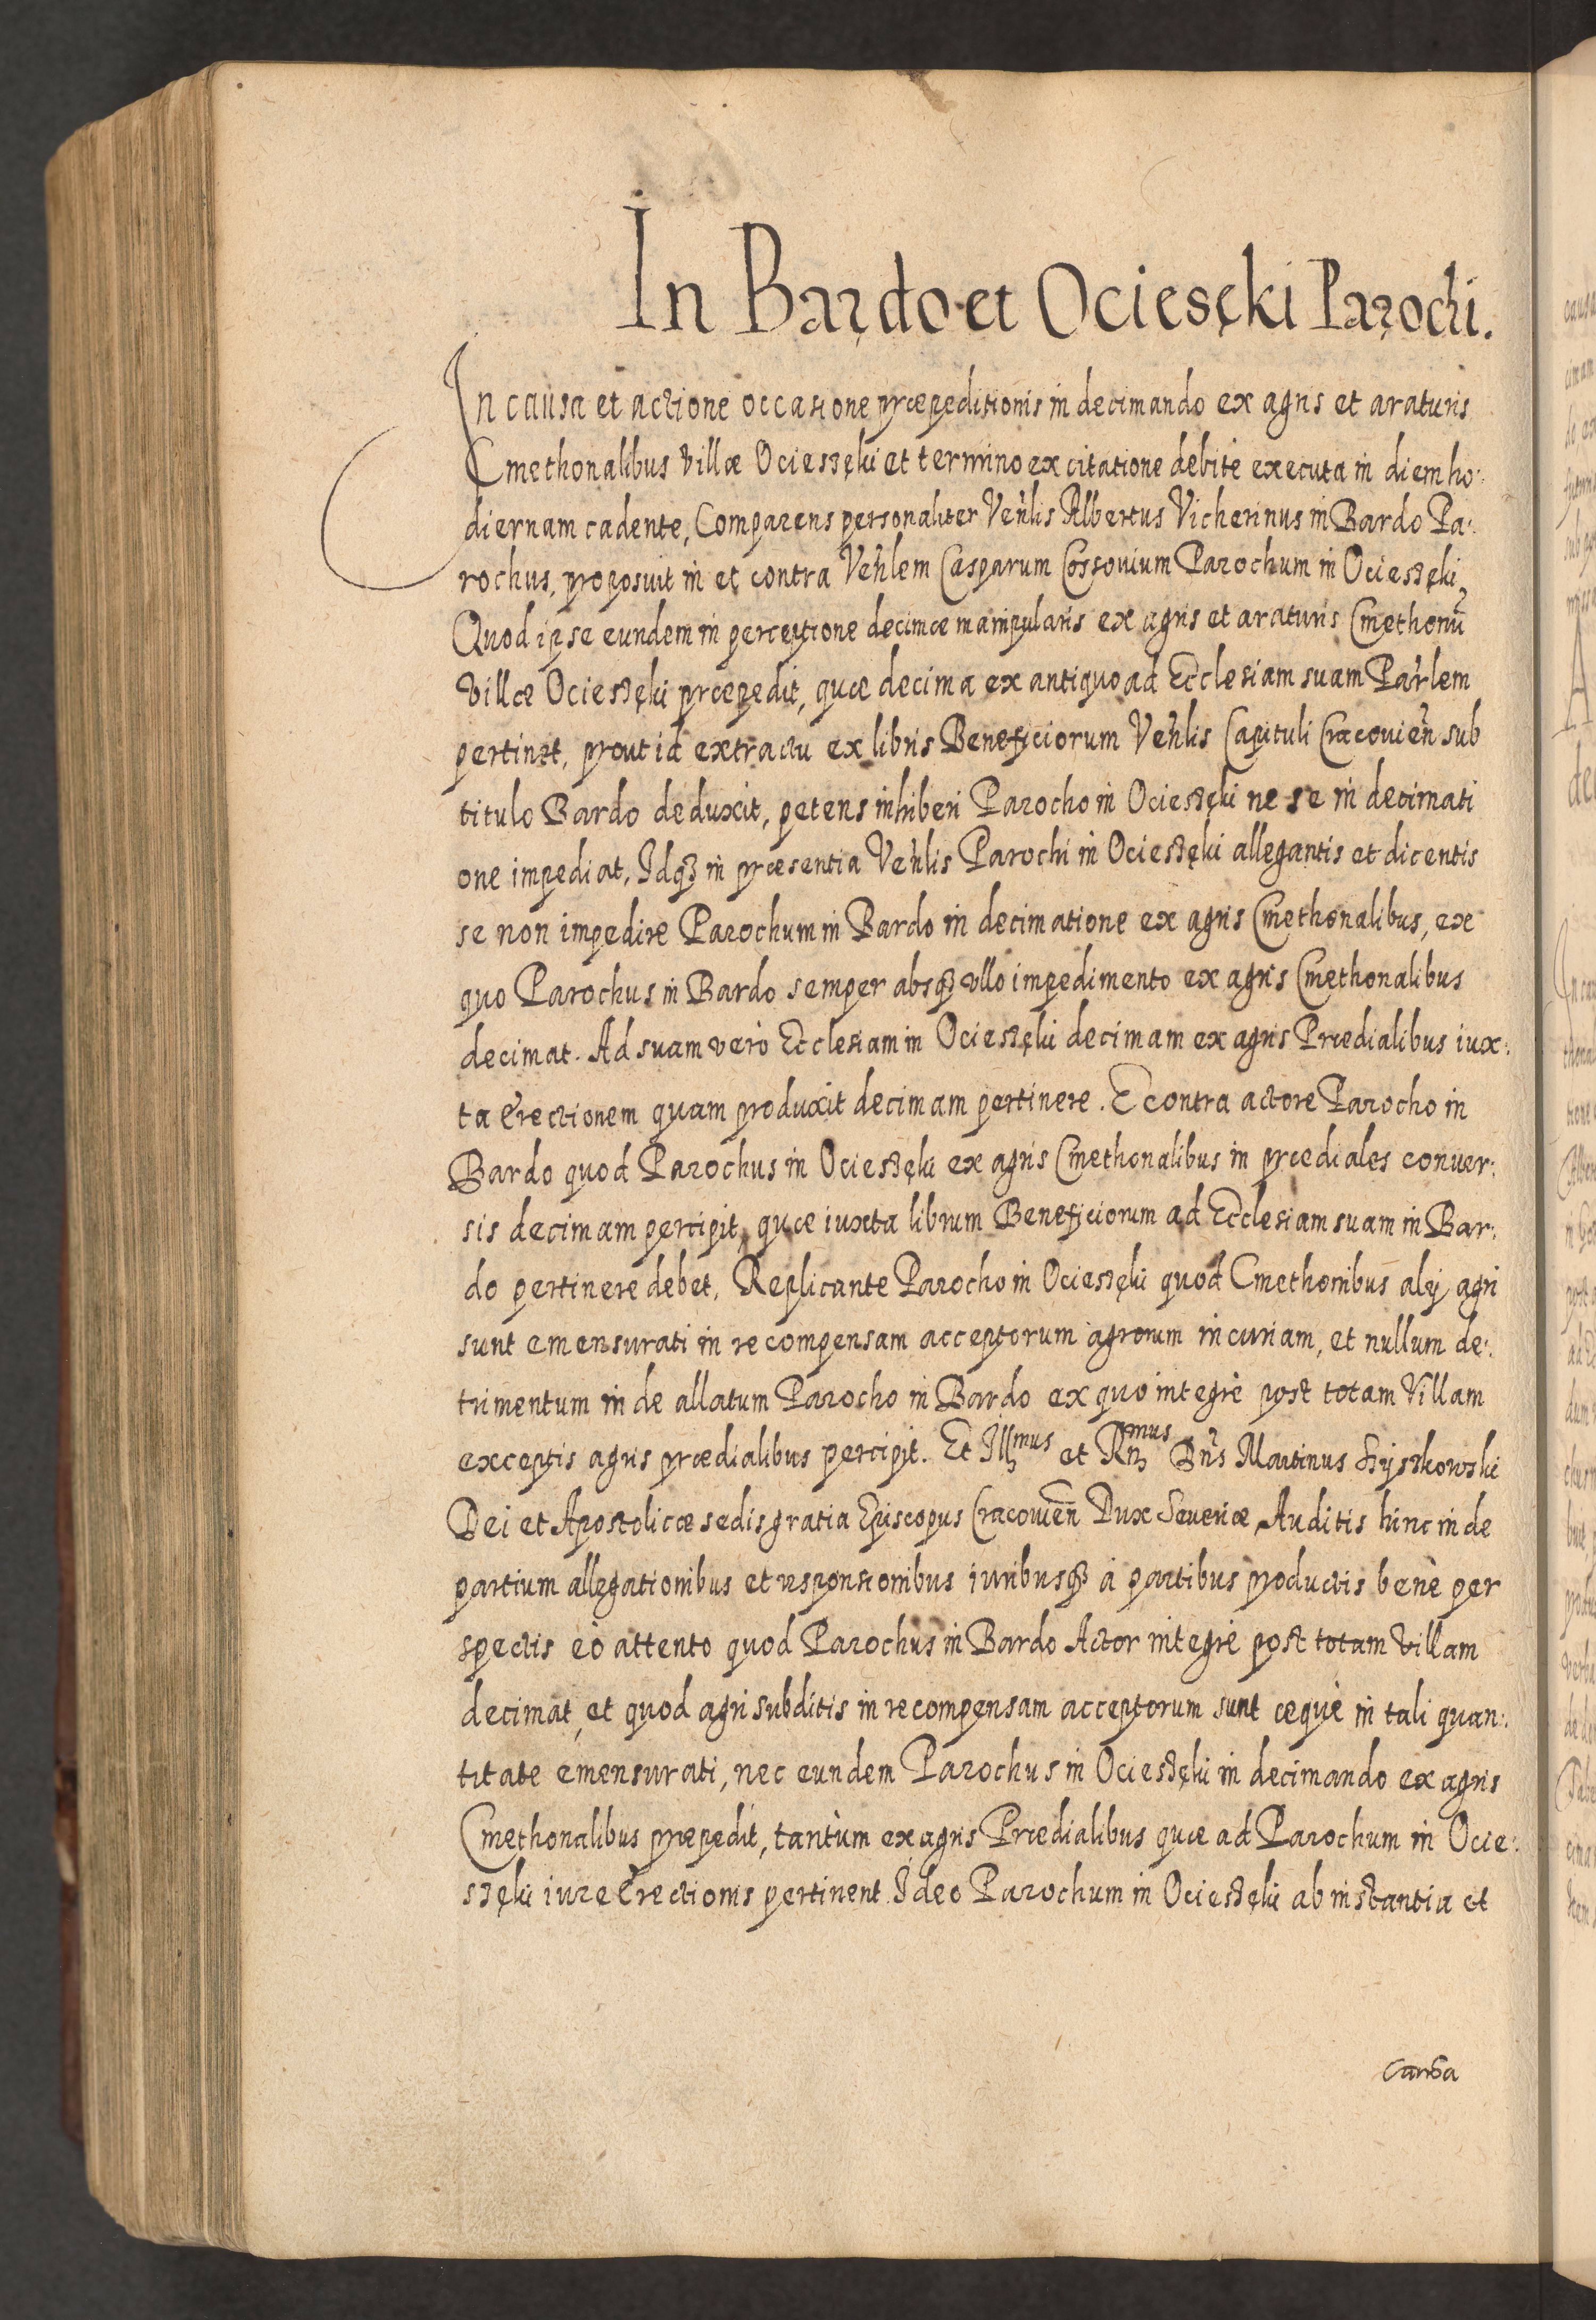 In Bardo et Ociesęki Parochi.
In causa et actione occasione præpeditionis in decimando ex agris et araturis
Cmethonalibus villæ Ocieszęki et termino ex citatione debite executa in diem ho:
diernam cadente, Comparens personaliter Venlis Albertus Vicherinus in Bardo Pa:
rochus, proposuit in et contra Venlem Casparum Cossouium Parochum in Ocieszęki,
Quod ipse eundem in perceptione decimæ manipularis ex agris et araturis Cmethonũ
villæ Ocieszęki præpedit, quæ decima ex antiquo ad Ecclesiam suam Parlem
pertinet, prout id extractu ex libris Beneficiorum Venlis Capituli Cracouien sub
titulo Bardo deduxit, petens inhiberi Parocho in Ocieszęki ne se in decimati
one impediat, Idq3 in præsentia Venlis Parochi in Ocieszęki allegantis et dicentis
se non impedire Parochum in Bardo in decimatione ex agris Cmethonalibus, ex
quo Parochus in Bardo semper absq3 vllo impedimento ex agris Cmethonalibus
decimat. Ad suam verò Ecclesiam in Ocieszęki decimam ex agris Prædialibus iux:
ta Erectionem quam produxit decimam pertinere. E contra actore Parocho in
Bardo quod Parochus in Ocieszęki ex agris Cmethonalibus in prædiales conuer:
sis decimam percipit, quæ iuxta librum Beneficiorum ad Ecclesiam suam in Bar:
do pertinere debet, Replicante Parocho in Ocieszęki quod Cmethonibus alij agri
sunt emensurati in recompensam acceptorum agrorum in curiam, et nullum de:
trimentum inde allatum Parocho in Bardo ex quo integrè post totam Villam
exceptis agris prædialibus percipit. Et Illmus et Rnmus Dns Martinus Szyszkowski
Dei et Apostolicæ sedis gratia Episcopus Cracouien Dux Seueriæ, Auditis hinc inde
partium allegationibus et responsionibus iuribusq3 à partibus productis benè per
spectis eò attento quod Parochus in Bardo Actor integrè post totam villam
decimat, et quod agri subditis in recompensam acceptorum sunt æquè in tali quan:
titate emensurati, nec eundem Parochus in Ocieszęki in decimando ex agris
Cmethonalibus præpedit, tantùm ex agris Prædialibus quæ ad Parochum in Ocie:
szęki iure Erectionis pertinent. Ideo Parochum in Ocieszęki ab instantia et
causa